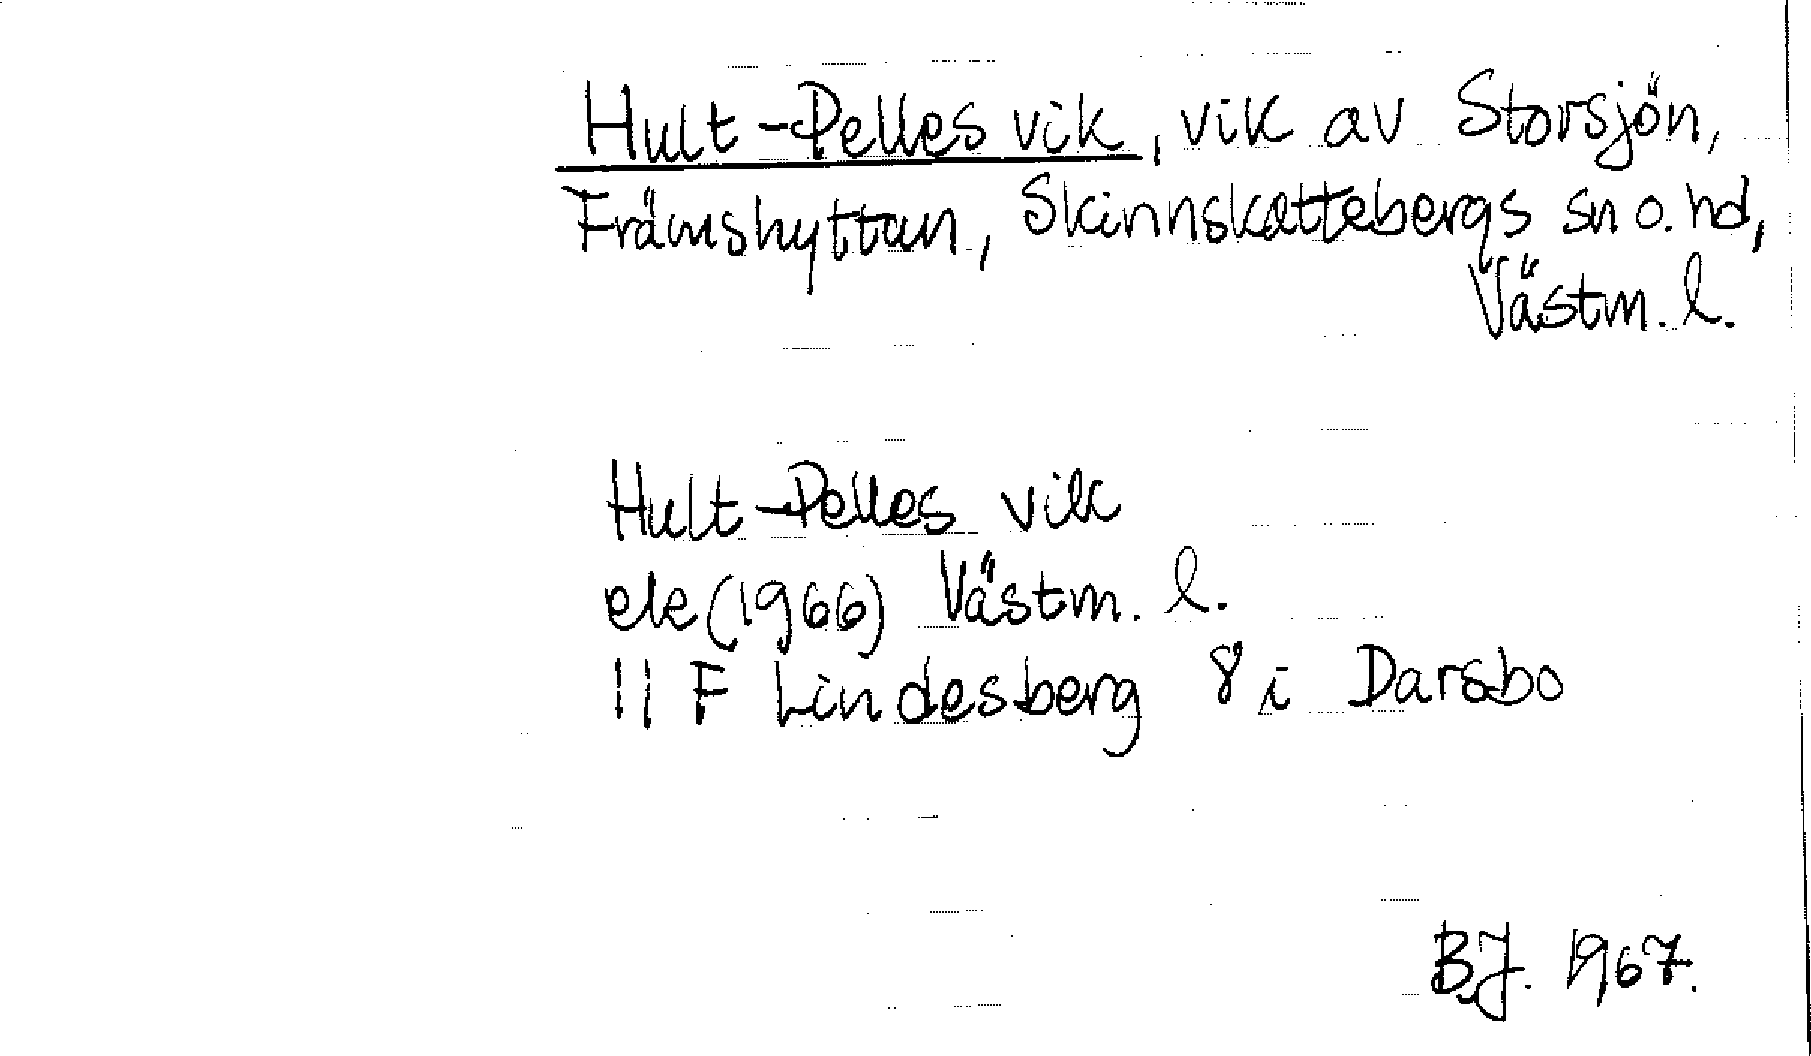 Hult-Pelles vik, vik av Storsjön,
Främshyttan, Skinnskattebergs sn o. hd,
Västm. l.
Hult-Pelles vik
ek (1966) Västm. l.
11 F Lindesberg 8 i Darsbo
B.J. 1967.